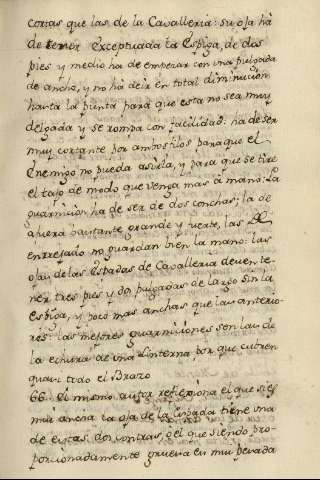 cortas que las de la Cavalleria: su oja há
de tener Exceptuada la Espiga, de dos
pies y medio ha de empezar con una pulgada
de ancho, y no há de ir en total diminucion
hasta la punta para que esta no sea muy
delgada y se rompa con facilidad: ha de ser
muy cortante por ambos filos para que el
Enemigo no pueda asirla, y para que se tire
el tajo de modo que venga mas á mano: La
guarnicion ha de ser de dos conchas; la de
afuera bastante grande y fuerte, las de
entrejado no guardan bien la mano: las
ojas de las Espadas de Cavalleria deven te-
ner tres pies y dos pulgadas de largo sin la
Espiga, y poco mas anchas que las anterio-
res: las mejores guarniciones son las de
la echura de una Linterna por que cubren
quasi todo el Brazo
66. El mismo autor reflexiona el que si es
muy ancha la oja de la Espada tiene una
de estas dos contras, ó el que siendo pro-
porcionadamente gruesa es muy pesada